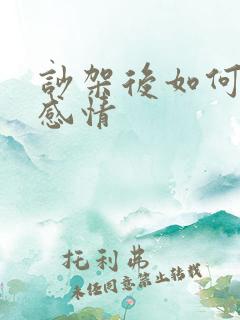 訬架後如何
感情
托利弗
未任同意禁止转载